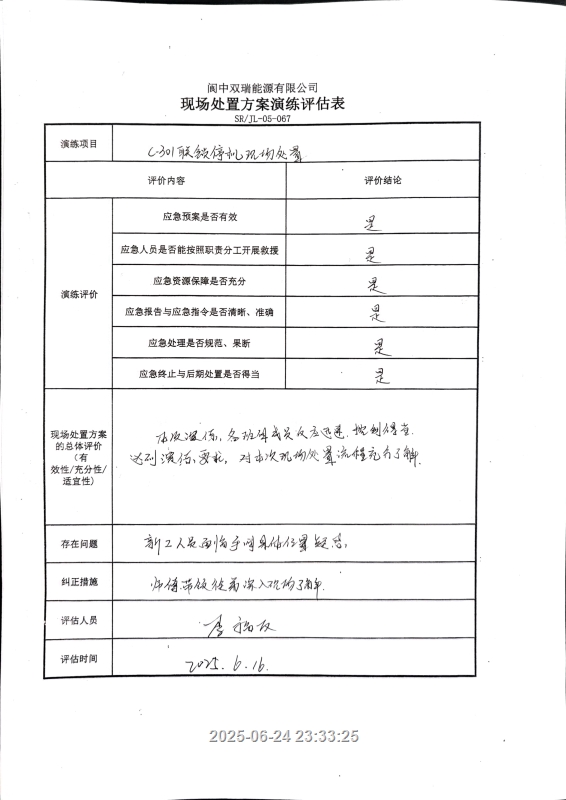 阆中双瑞能源有限公司
现场处置方案演练评估表
SR/JL-05-067
演练项目
C-301联锁停机现场处置
评价内容 评价结论
演练评价
应急预案是否有效 是
应急人员是否能按照职责分工开展救援 是
应急资源保障是否充分 是
应急报告与应急指令是否清晰、准确 是
应急处理是否规范、果断 是
应急终止与后期处置是否得当 是
现场处置方案
的总体评价
（有
效性/充分性/
适宜性）
本次演练，各班组成员反应迅速，
达到演练要求，对本次现场处置流程充分了解
存在问题
新工人员面临手阀具体位置疑惑。
纠正措施
师傅带领徒弟深入现场了解
评估人员
李
评估时间
2025.6.16.
2025-06-24 23:33:25